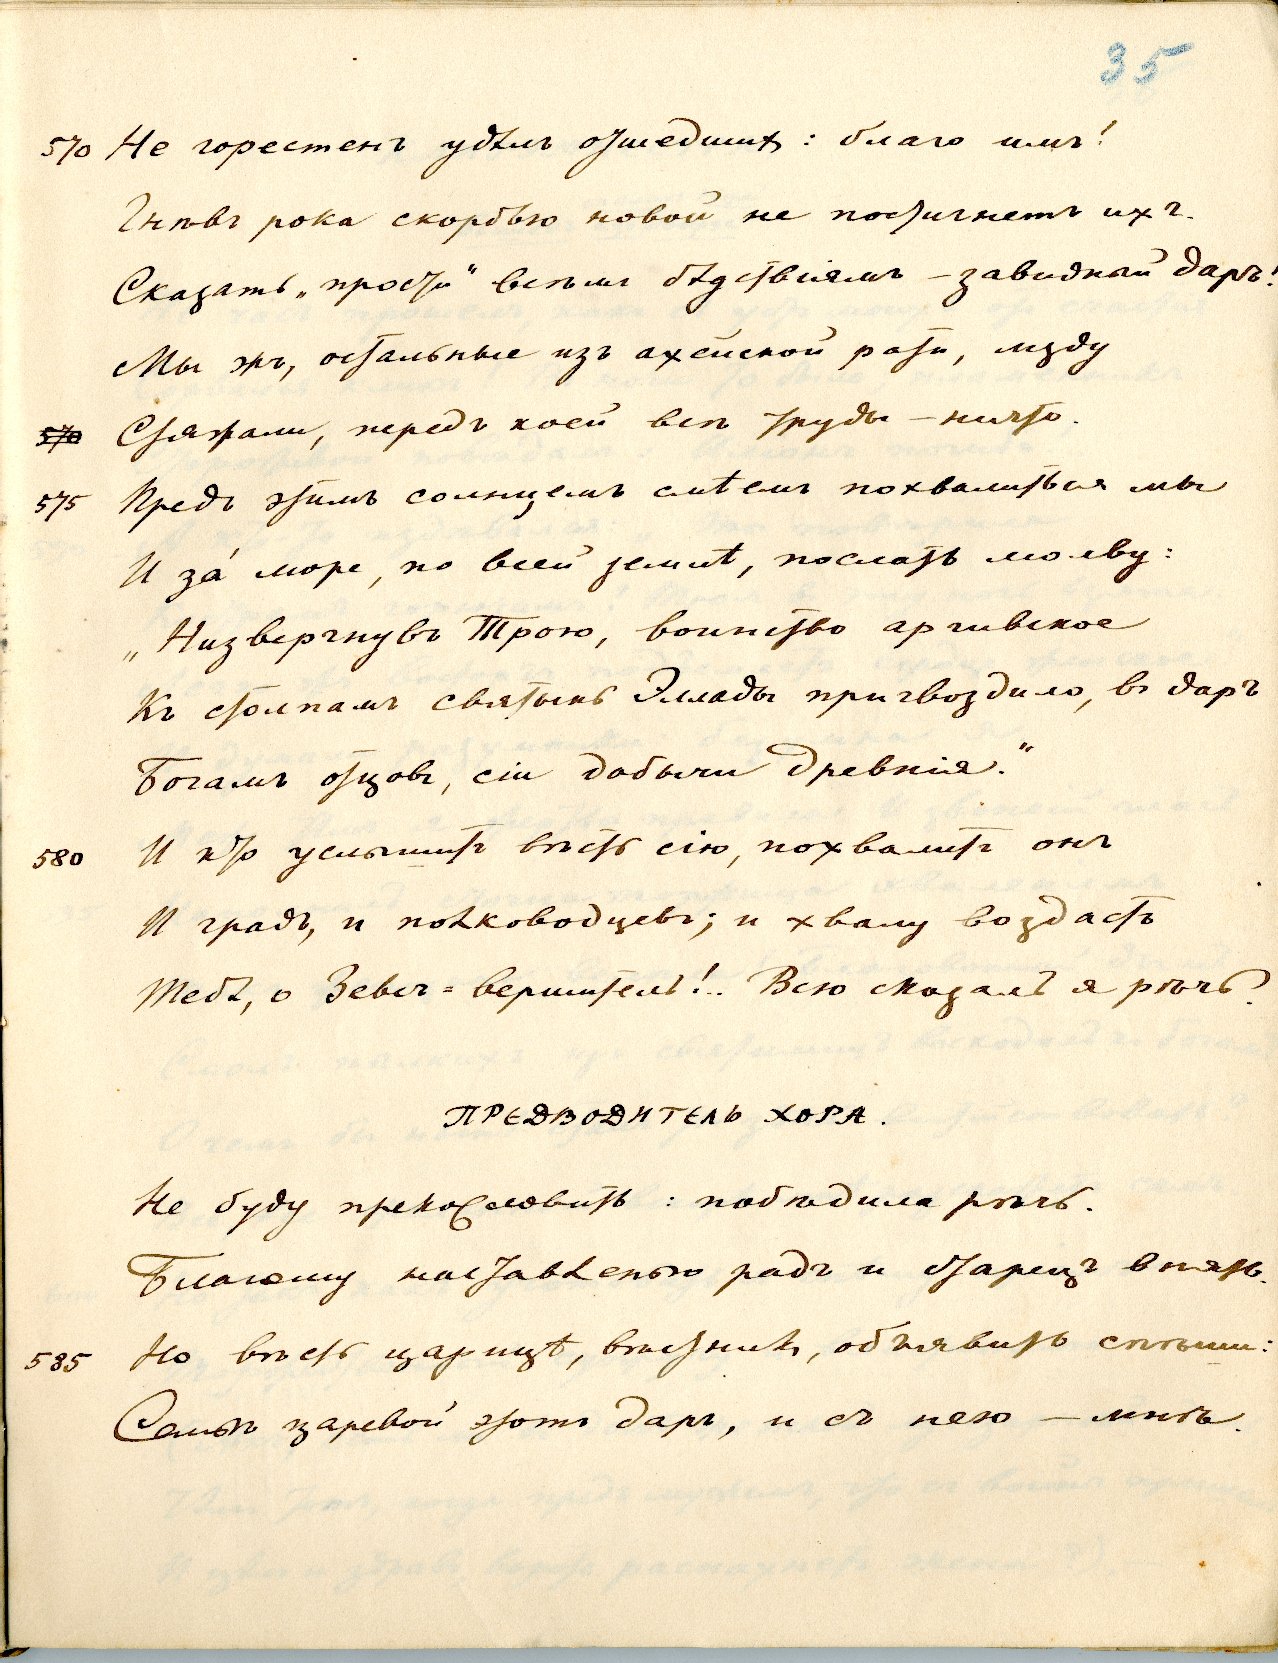 35
570 Не горестенъ удѣлъ отшедшихъ: благо имъ!
Гнѣвъ рока скорбью новой не постигнетъ ихъ.
Сказать „прости“ всѣмъ бѣдствіямъ – завидный даръ!
Мы жъ, остальные изъ ахейской рати, мзду
570 Стяжали, передъ коей всѣ труды – ничто.
575 Предъ этимъ солнцемъ смѣемъ похвалиться мы
И за́ море, по всей землѣ, послать молву:
„Низвергнувъ Трою, воинство аргивское
Къ столпамъ святынь Эллады пригвоздило, въ даръ
Богамъ отцовъ, сіи добычи древнія.“
580 И кто услышитъ вѣсть сію, похвалитъ онъ
И градъ, и полководцевъ; и хвалу воздастъ
Тебѣ, о Зевсъ-вершитель!.. Всю сказалъ я рѣчь.
ПРЕДВОДИТЕЛЬ ХОРА.
Не буду прекословить: побѣдила рѣчь.
Благому наставленью радъ и старецъ внять.
585 Но вѣсть царицѣ, вѣстникъ, объявить спѣши:
Семьѣ царевой этотъ даръ, и съ нею – мнѣ.